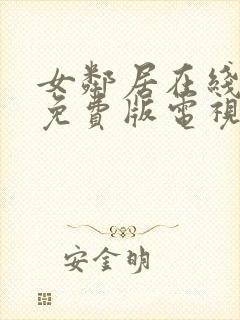 女鄰居在綫
免費版電視
安金明